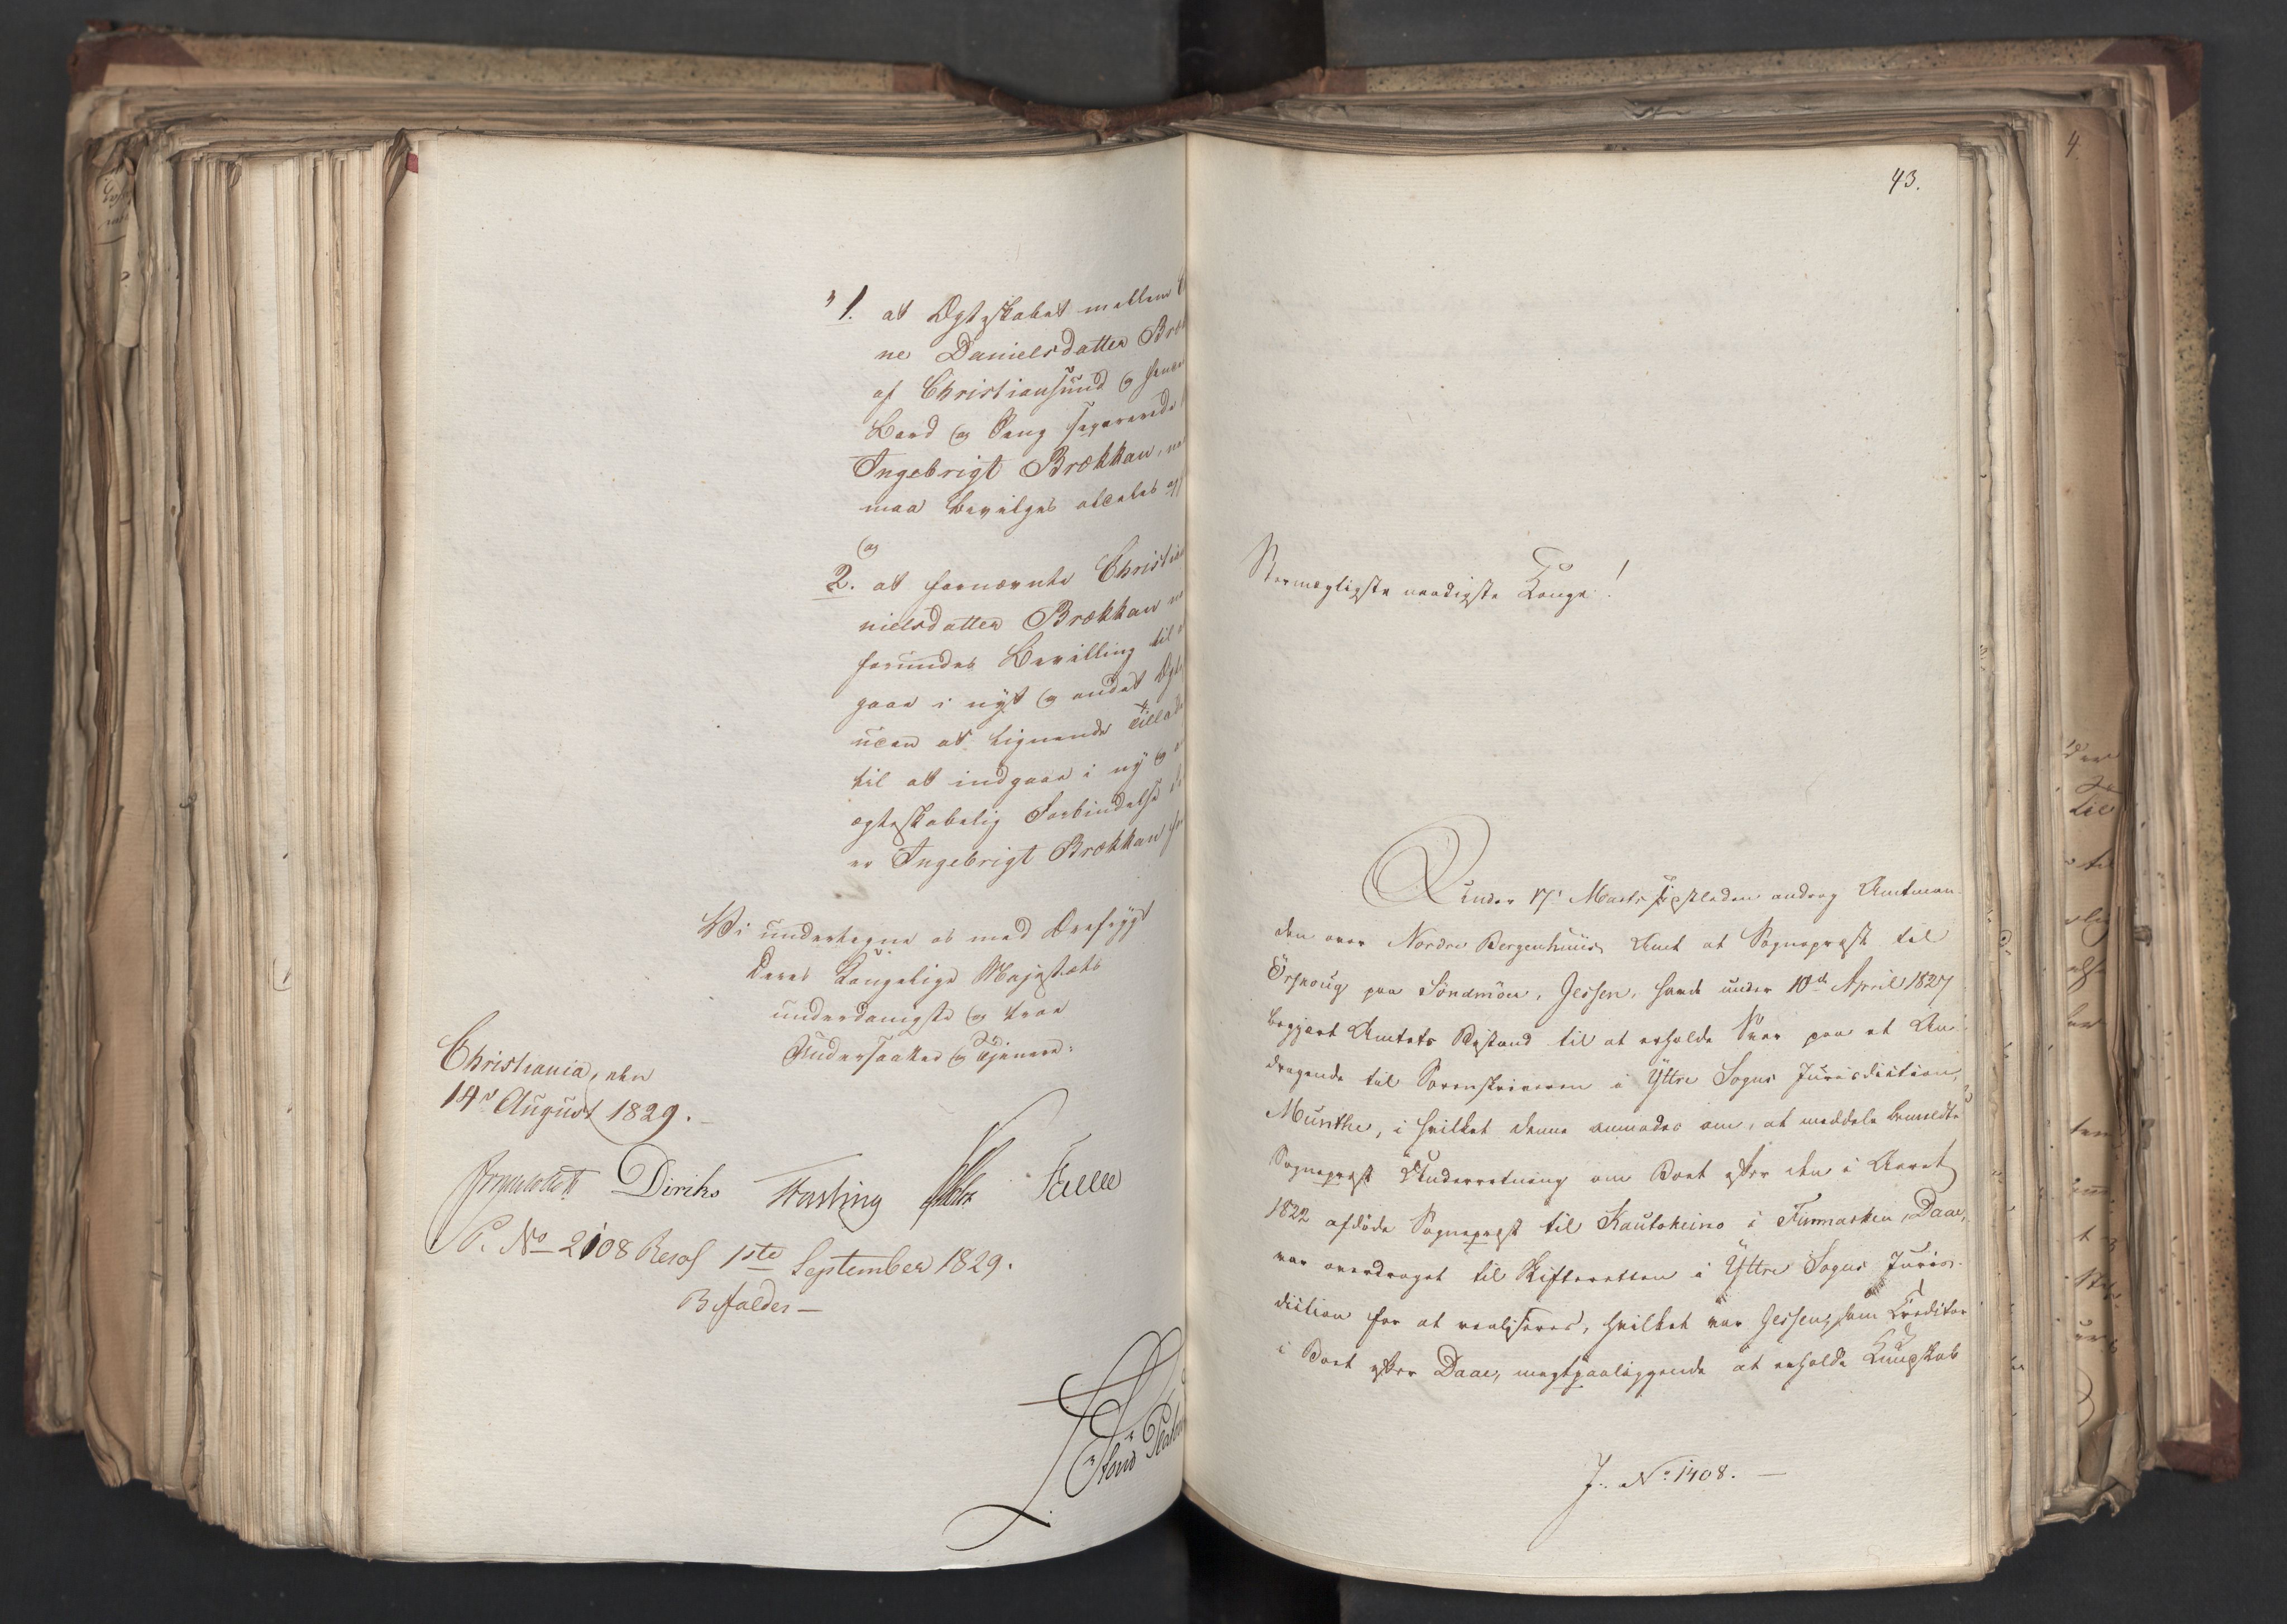 "1. at Ægteskabet mellem
ne Danielsdatter Bræk
af Christiansund og hendes
Bord og Seng separerede
Ingebrigt Brækkan, 
maa bevilges ophævet
og
2. at fornævnte Christia
nielsdatter Brækkan
forundes Bevilling til
gaae i nyt og andet Ægte
uden at lignende Tillad
til at indgaae i ny og
ægteskabelig Forbindelse
er Ingebrigt Brækkan
Vi undertegne os med Ærefrygt
Deres Kongelige Majestæts
underdanigste og troe
Undersaatter og Tjenere:
Christiania, den
14de August 1829.
Diriks Fasting Falbe
P. No 2108 Resol 1ste September 1829.
Bifaldes
43.
Stormægtigste naadigste Konge!
Under 17 Marts sidstleden androg Amtman-
den over Nordre Bergenhuus Amt at Sognepræst til
Örskoug paa Söndmör, Jessen, havde under 10de April 1827
begjert Amtets Bistand til at erholde Svar paa et An-
dragende til Sorenskriveren i Yttre Sogns Jurisdiction,
Munthe, i hvilket denne anmodes om, at meddele bemeldte
Sognepræst Underretning om Boet efter den i Aaret
1822 afdöde Sognepræst til Kautokeino i Finmarken, Daae,
var overdraget til Skifteretten i Yttre Sogns Juris-
diction for at realiseres, hvilket var Jessen, som Creditor
i Boet efter Daae, magtpaaliggende at erholde Kundskab
J. No 1408.